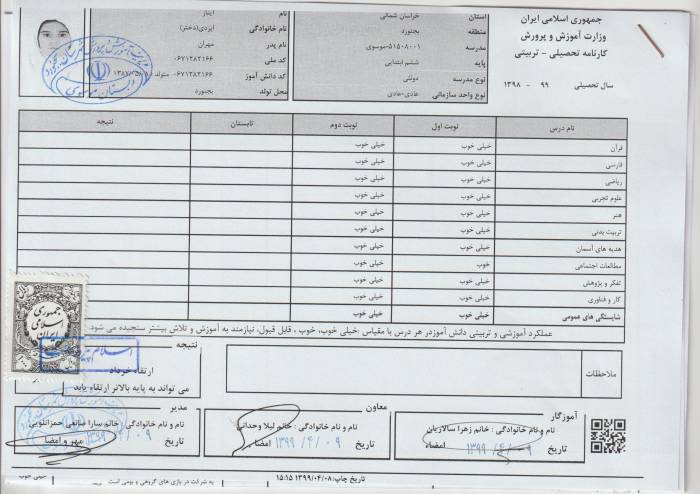 جمهوری اسلامی ایران
وزارت آموزش و پرورش
کارنامه تحصیلی - تربیتی
سال تحصیلی ۹۹ - ۱۳۹۸
استان خراسان شمالی
منطقه بجنورد
مدرسه ۵۱۵۰۸۰۰۱-موسوی
پایه ششم ابتدایی
نوع مدرسه دولتی
نوع واحد سازمانی عادی-عادی
نام ایناز
نام خانوادگی ایزدی(دختر)
نام پدر مهران
کد ملی ۰۶۷۱۲۸۲۱۶۶
کد دانش آموز ۰۶۷۱۲۸۲۱۶۶ متولد
محل تولد بجنورد
نام درس نوبت اول نوبت دوم تابستان نتیجه
قرآن خیلی خوب خیلی خوب
فارسی خیلی خوب خیلی خوب
ریاضی خیلی خوب خیلی خوب
علوم تجربی خیلی خوب خیلی خوب
هنر خیلی خوب خیلی خوب
تربیت بدنی خیلی خوب خیلی خوب
هدیه های آسمان خیلی خوب خیلی خوب
مطالعات اجتماعی خوب خیلی خوب
تفکر و پژوهش خیلی خوب خیلی خوب
کار و فناوری خیلی خوب خیلی خوب
شایستگی های عمومی خیلی خوب خیلی خوب
عملکرد آموزشی و تربیتی دانش آموزدر هر درس با مقیاس :خیلی خوب، خوب ، قابل قبول، نیازمند به آموزش و تلاش بیشتر سنجیده می شود.
ملاحظات
نتیجه
ارتقاء خرداد
می تواند به پایه بالاتر ارتقاء یابد
جمهوری
اسلامی
ایران
آموزگار
نام و نام خانوادگی : خانم زهرا سالاریان
تاریخ ۱۳۹۹/۴/۰۹ امضاء
معاون
نام و نام خانوادگی : خانم لیلا وحدانی
تاریخ ۱۳۹۹/۴/۰۹ امضاء
مدیر
نام و نام خانوادگی : خانم سارا صانعی حمزانلویی
تاریخ ۱۳۹۹/۴/۰۹ مهر و امضا
تاریخ چاپ:۱۳۹۹/۰۴/۰۸ ۱۵:۱۵
به شرکت در بازی های گروهی و بومی است